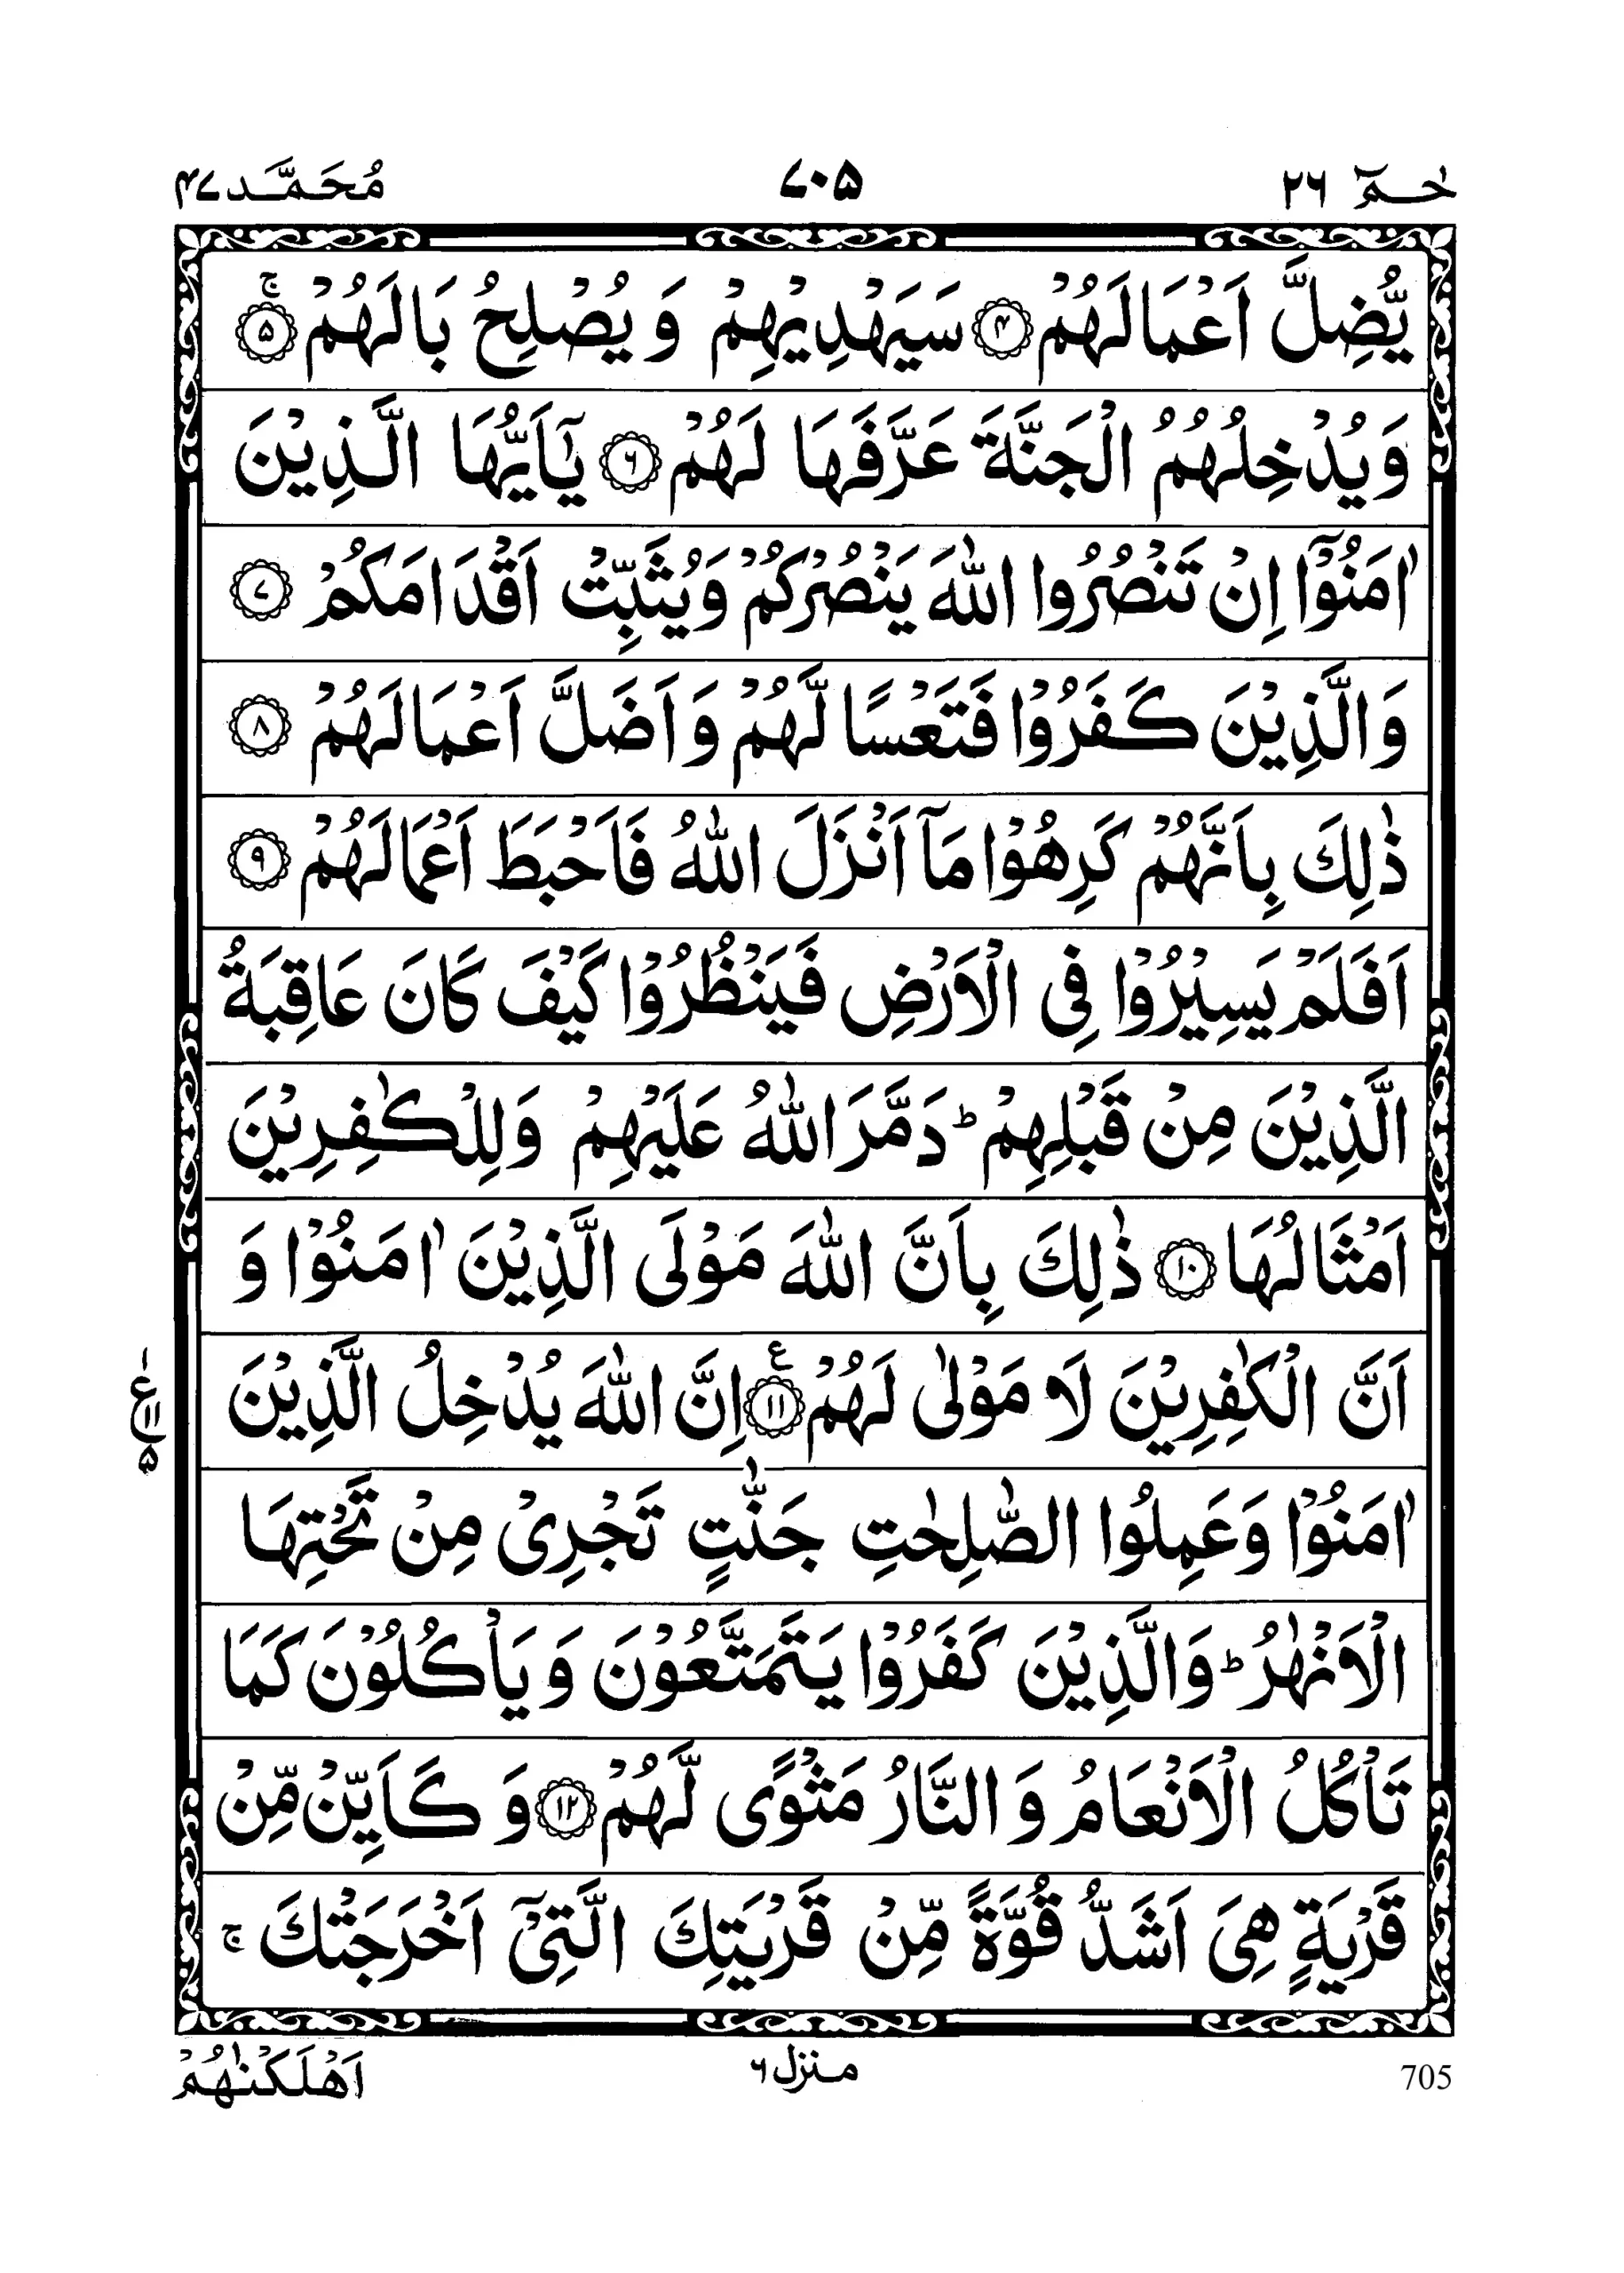 حٰمٓ ۲۶ ۷۰۵ مُحَمَّد ۴۷
يُّضِلَّ اَعْمَالَهُمْ ﴿۴﴾ سَيَهْدِيْهِمْ وَ يُصْلِحُ بَالَهُمْ ۚ ﴿۵﴾
وَيُدْخِلُهُمُ الْجَنَّةَ عَرَّفَهَا لَهُمْ ﴿۶﴾ يٰٓاَيُّهَا الَّذِيْنَ
اٰمَنُوْٓا اِنْ تَنْصُرُوا اللّٰهَ يَنْصُرْكُمْ وَيُثَبِّتْ اَقْدَامَكُمْ ﴿۷﴾
وَالَّذِيْنَ كَفَرُوْا فَتَعْسًا لَّهُمْ وَاَضَلَّ اَعْمَالَهُمْ ﴿۸﴾
ذٰلِكَ بِاَنَّهُمْ كَرِهُوْا مَآ اَنْزَلَ اللّٰهُ فَاَحْبَطَ اَعْمَالَهُمْ ﴿۹﴾
اَفَلَمْ يَسِيْرُوْا فِى الْاَرْضِ فَيَنْظُرُوْا كَيْفَ كَانَ عَاقِبَةُ
الَّذِيْنَ مِنْ قَبْلِهِمْ ؕ دَمَّرَ اللّٰهُ عَلَيْهِمْ وَلِلْكٰفِرِيْنَ
اَمْثَالُهَا ﴿۱۰﴾ ذٰلِكَ بِاَنَّ اللّٰهَ مَوْلَى الَّذِيْنَ اٰمَنُوْا وَ
اَنَّ الْكٰفِرِيْنَ لَا مَوْلٰى لَهُمْ ﴿۱۱﴾ ع اِنَّ اللّٰهَ يُدْخِلُ الَّذِيْنَ
۱ ع ۱۱ ۵
اٰمَنُوْا وَعَمِلُوا الصّٰلِحٰتِ جَنّٰتٍ تَجْرِىْ مِنْ تَحْتِهَا
الْاَنْهٰرُ ؕ وَالَّذِيْنَ كَفَرُوْا يَتَمَتَّعُوْنَ وَيَاْكُلُوْنَ كَمَا
تَاْكُلُ الْاَنْعَامُ وَالنَّارُ مَثْوًى لَّهُمْ ﴿۱۲﴾ وَ كَاَيِّنْ مِّنْ
قَرْيَةٍ هِىَ اَشَدُّ قُوَّةً مِّنْ قَرْيَتِكَ الَّتِىْٓ اَخْرَجَتْكَ ۚ
705 منزل ۶ اَهْلَكْنٰهُمْ